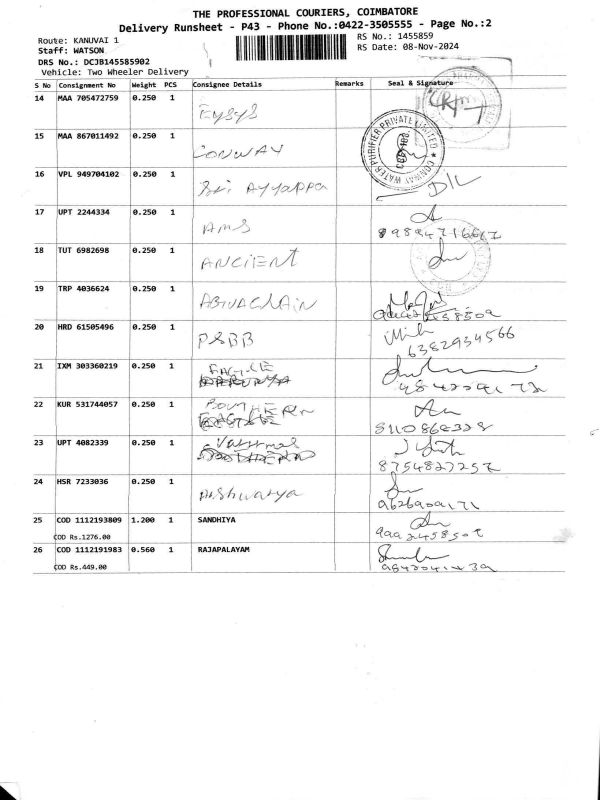 THE PROFESSIONAL COURIERS, COIMBATORE
Delivery Runsheet - P43 - Phone No.:0422-3505555 - Page No.:2
Route: KANUVAI 1
RS No.: 1455859
Staff: WATSON
RS Date: 08-Nov-2024
DRS No.: DCJB145585902
Vehicle: Two Wheeler Delivery
S No Consignment No Weight PCS Consignee Details Remarks Seal & Signature
14 MAA 705472759 0.250 1
15 MAA 867011492 0.250 1 CONWAY
CONWAY WATER PURIFIER PRIVATE LIMITED
16 VPL 949704102 0.250 1 Sri Ayyappa
17 UPT 2244334 0.250 1 AMS
18 TUT 6982698 0.250 1 ANCIENT
19 TRP 4036624 0.250 1
20 HRD 61505496 0.250 1 PSBB
6382934566
21 IXM 303360219 0.250 1
22 KUR 531744057 0.250 1 SOUTHERN
23 UPT 4082339 0.250 1
8754827257
24 HSR 7233036 0.250 1 Aishwarya
9626909171
25 COD 1112193809 1.200 1 SANDHIYA
COD Rs.1276.00
26 COD 1112191983 0.560 1 RAJAPALAYAM
COD Rs.449.00